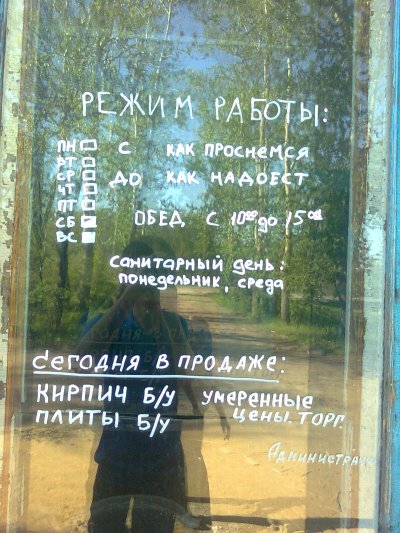 РЕЖИМ РАБОТЫ:
ПН
ВТ
СР
ЧТ
ПТ
СБ
ВС
С КАК ПРОСНЕМСЯ
ДО КАК НАДОЕСТ
ОБЕД С 10⁰⁰ до 15⁰⁰
санитарный день:
понедельник, среда
Сегодня В ПРОДАЖЕ:
КИРПИЧ Б/У умеренные
ПЛИТЫ Б/У цены. ТОРГ.
Администрац